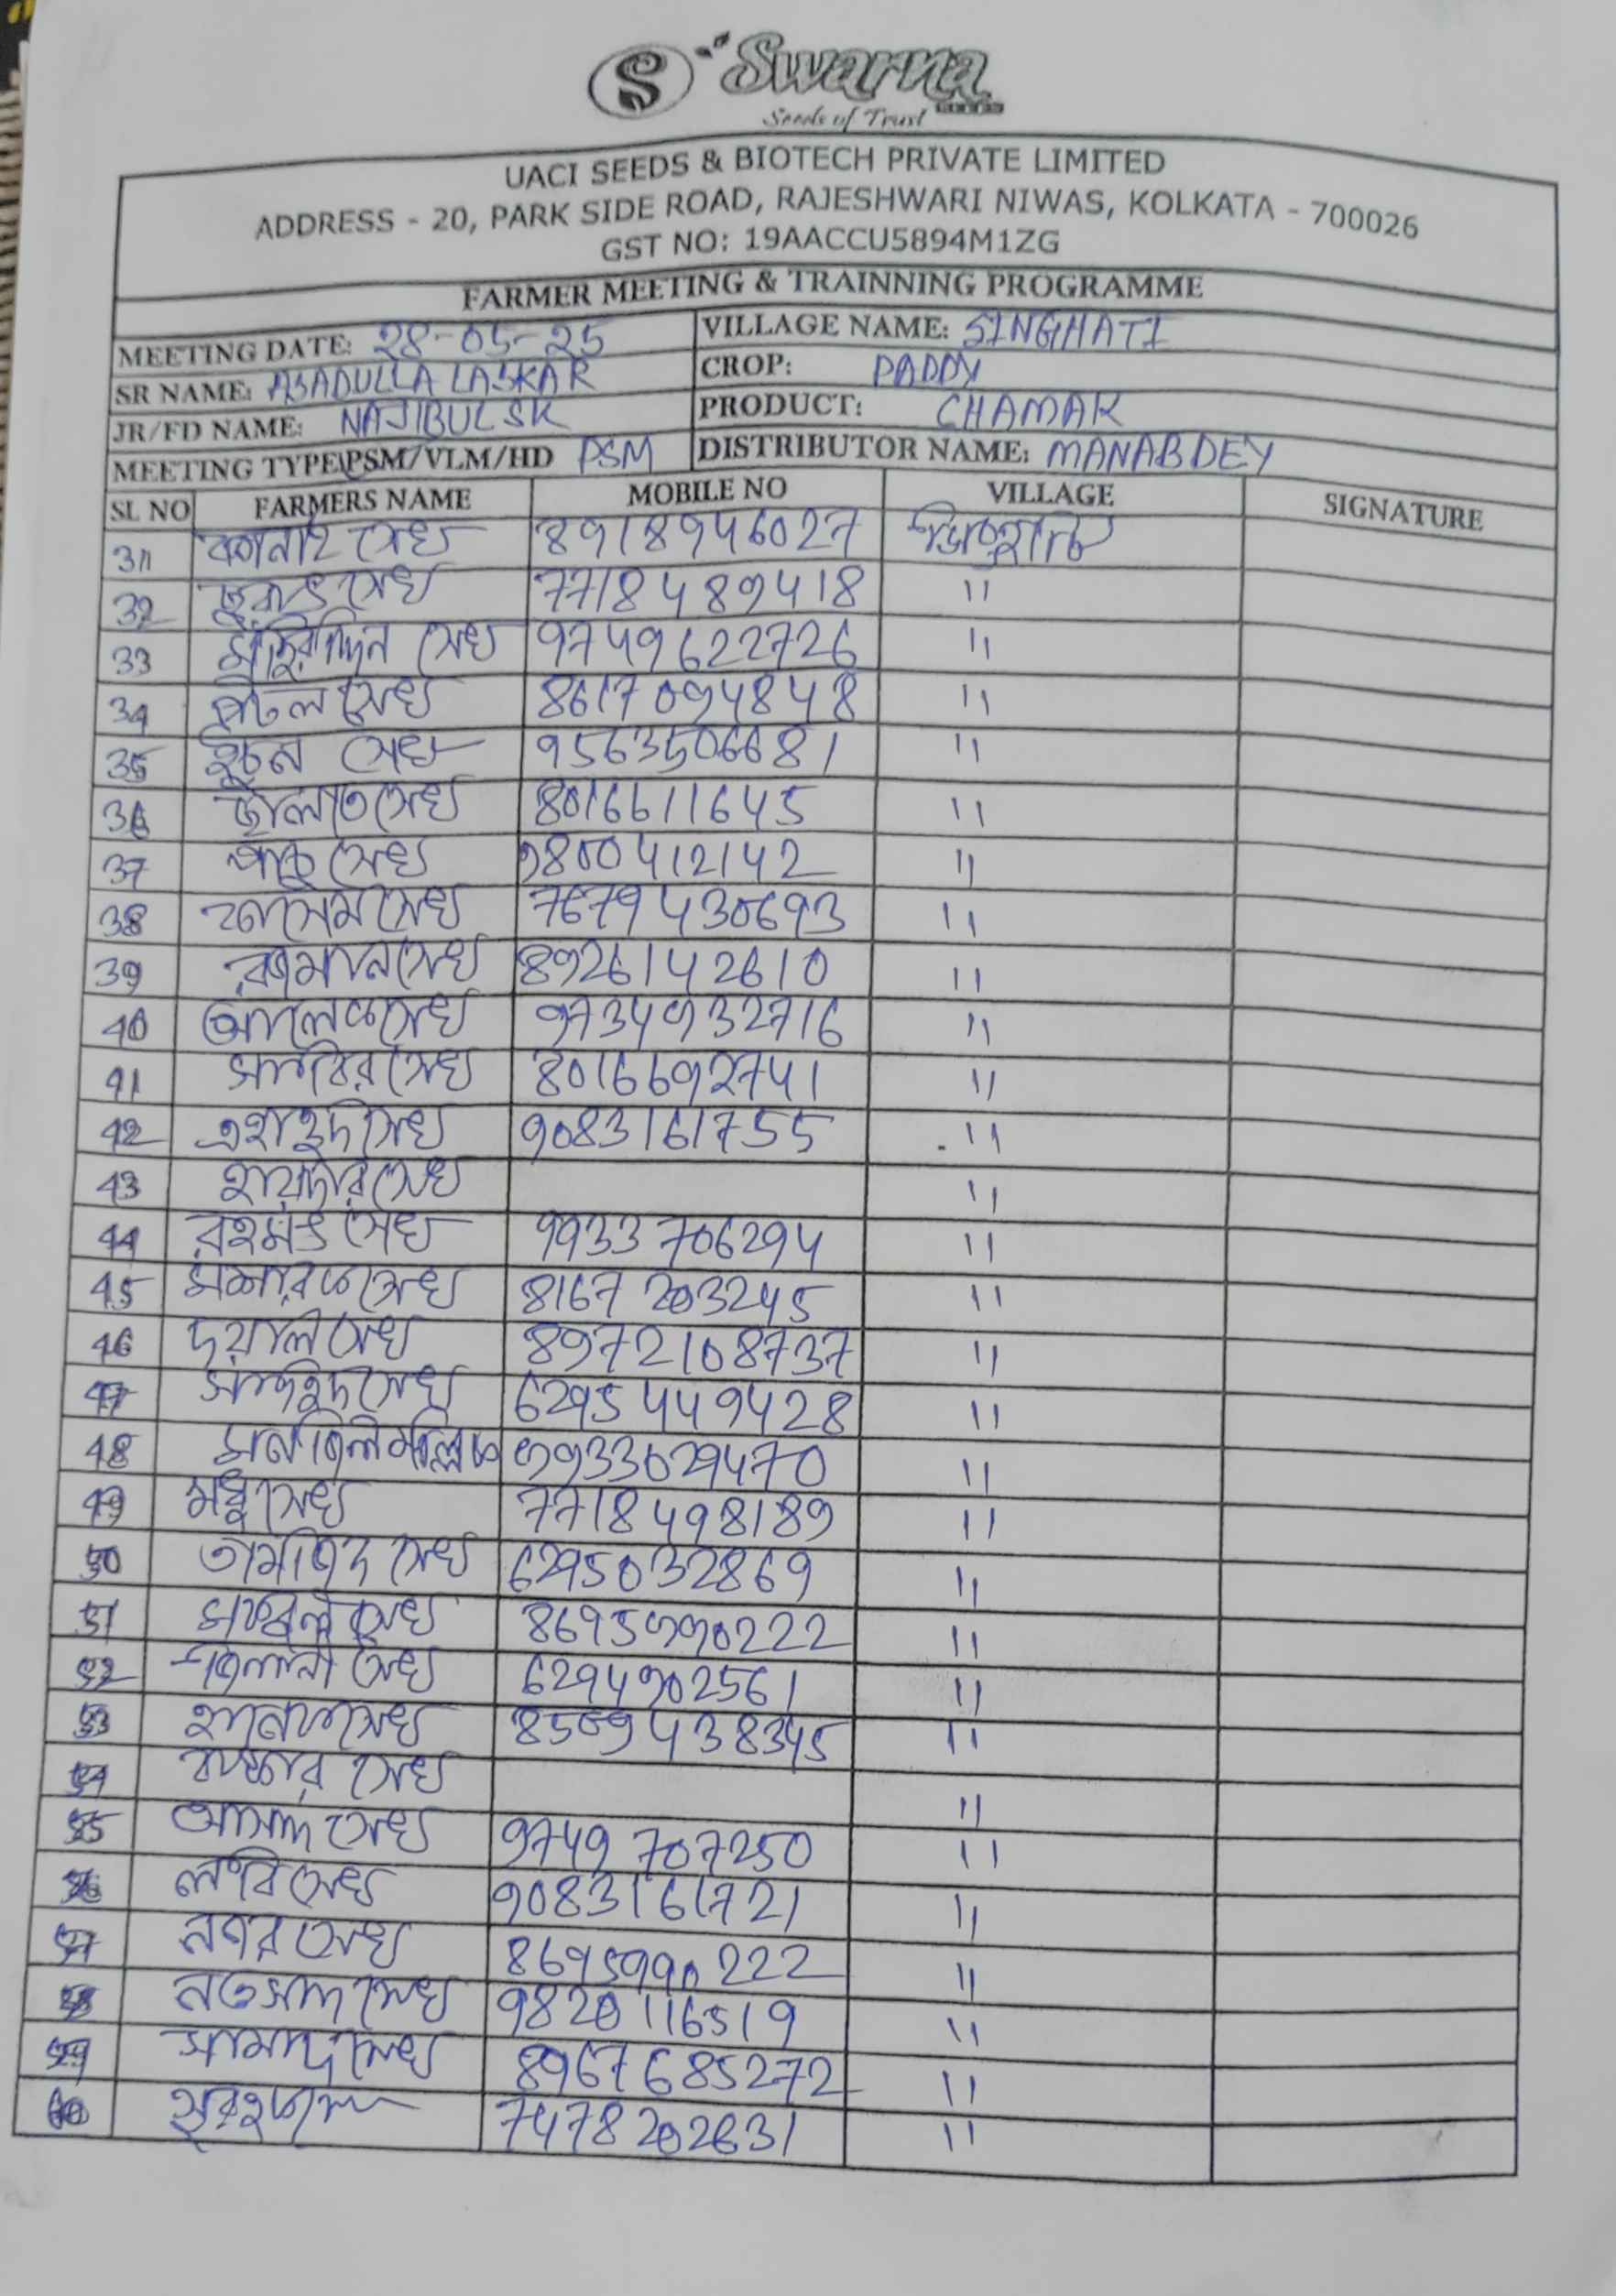 S Swarna
Seeds of Trust
UACI SEEDS & BIOTECH PRIVATE LIMITED
ADDRESS - 20, PARK SIDE ROAD, RAJESHWARI NIWAS, KOLKATA - 700026
GST NO: 19AACCU5894M1ZG
FARMER MEETING & TRAINNING PROGRAMME
MEETING DATE: 28-05-25 VILLAGE NAME: SINGHATI
SR NAME: ASADULLA LASKAR CROP: PADDY
JR/FD NAME: NAJIBUL SK PRODUCT: CHAMAK
MEETING TYPE\PSM/VLM/HD PSM DISTRIBUTOR NAME: MANAB DEY
SL NO FARMERS NAME MOBILE NO VILLAGE SIGNATURE
31 কানাই সেখ 8918946027
32 সেখ 7718489418 "
33 সেখ 9749622726 "
34 পটল সেখ 8617094848 "
35 সেখ 9563506681 "
36 সেখ 8016611645 "
37 পাচু সেখ 9800412142 "
38 কাসেম সেখ 7679430693 "
39 রহমান সেখ 8926142610 "
40 আলেক সেখ 9734932716 "
41 সাবির সেখ 8016692741 "
42 সেখ 9083161755 "
43 হায়দার সেখ "
44 রহমত সেখ 9933706294 "
45 মোশারফ সেখ 8167203245 "
46 দয়াল সেখ 8972108737 "
47 সেখ 6295449428 "
48 মল্লিক 9933029470 "
49 মধু সেখ 7718498189 "
50 সেখ 6295032869 "
51 সেখ 8695990222 "
52 জিলানী সেখ 6294902561 "
53 হানেফ সেখ 8509438345 "
54 সেখ "
55 আসাদ সেখ 9749707250 "
56 লবি সেখ 9083161721 "
57 সেখ 8695990222 "
58 সেখ 9820116519 "
59 সামাদ সেখ 8967685272 "
60 7478202631 "